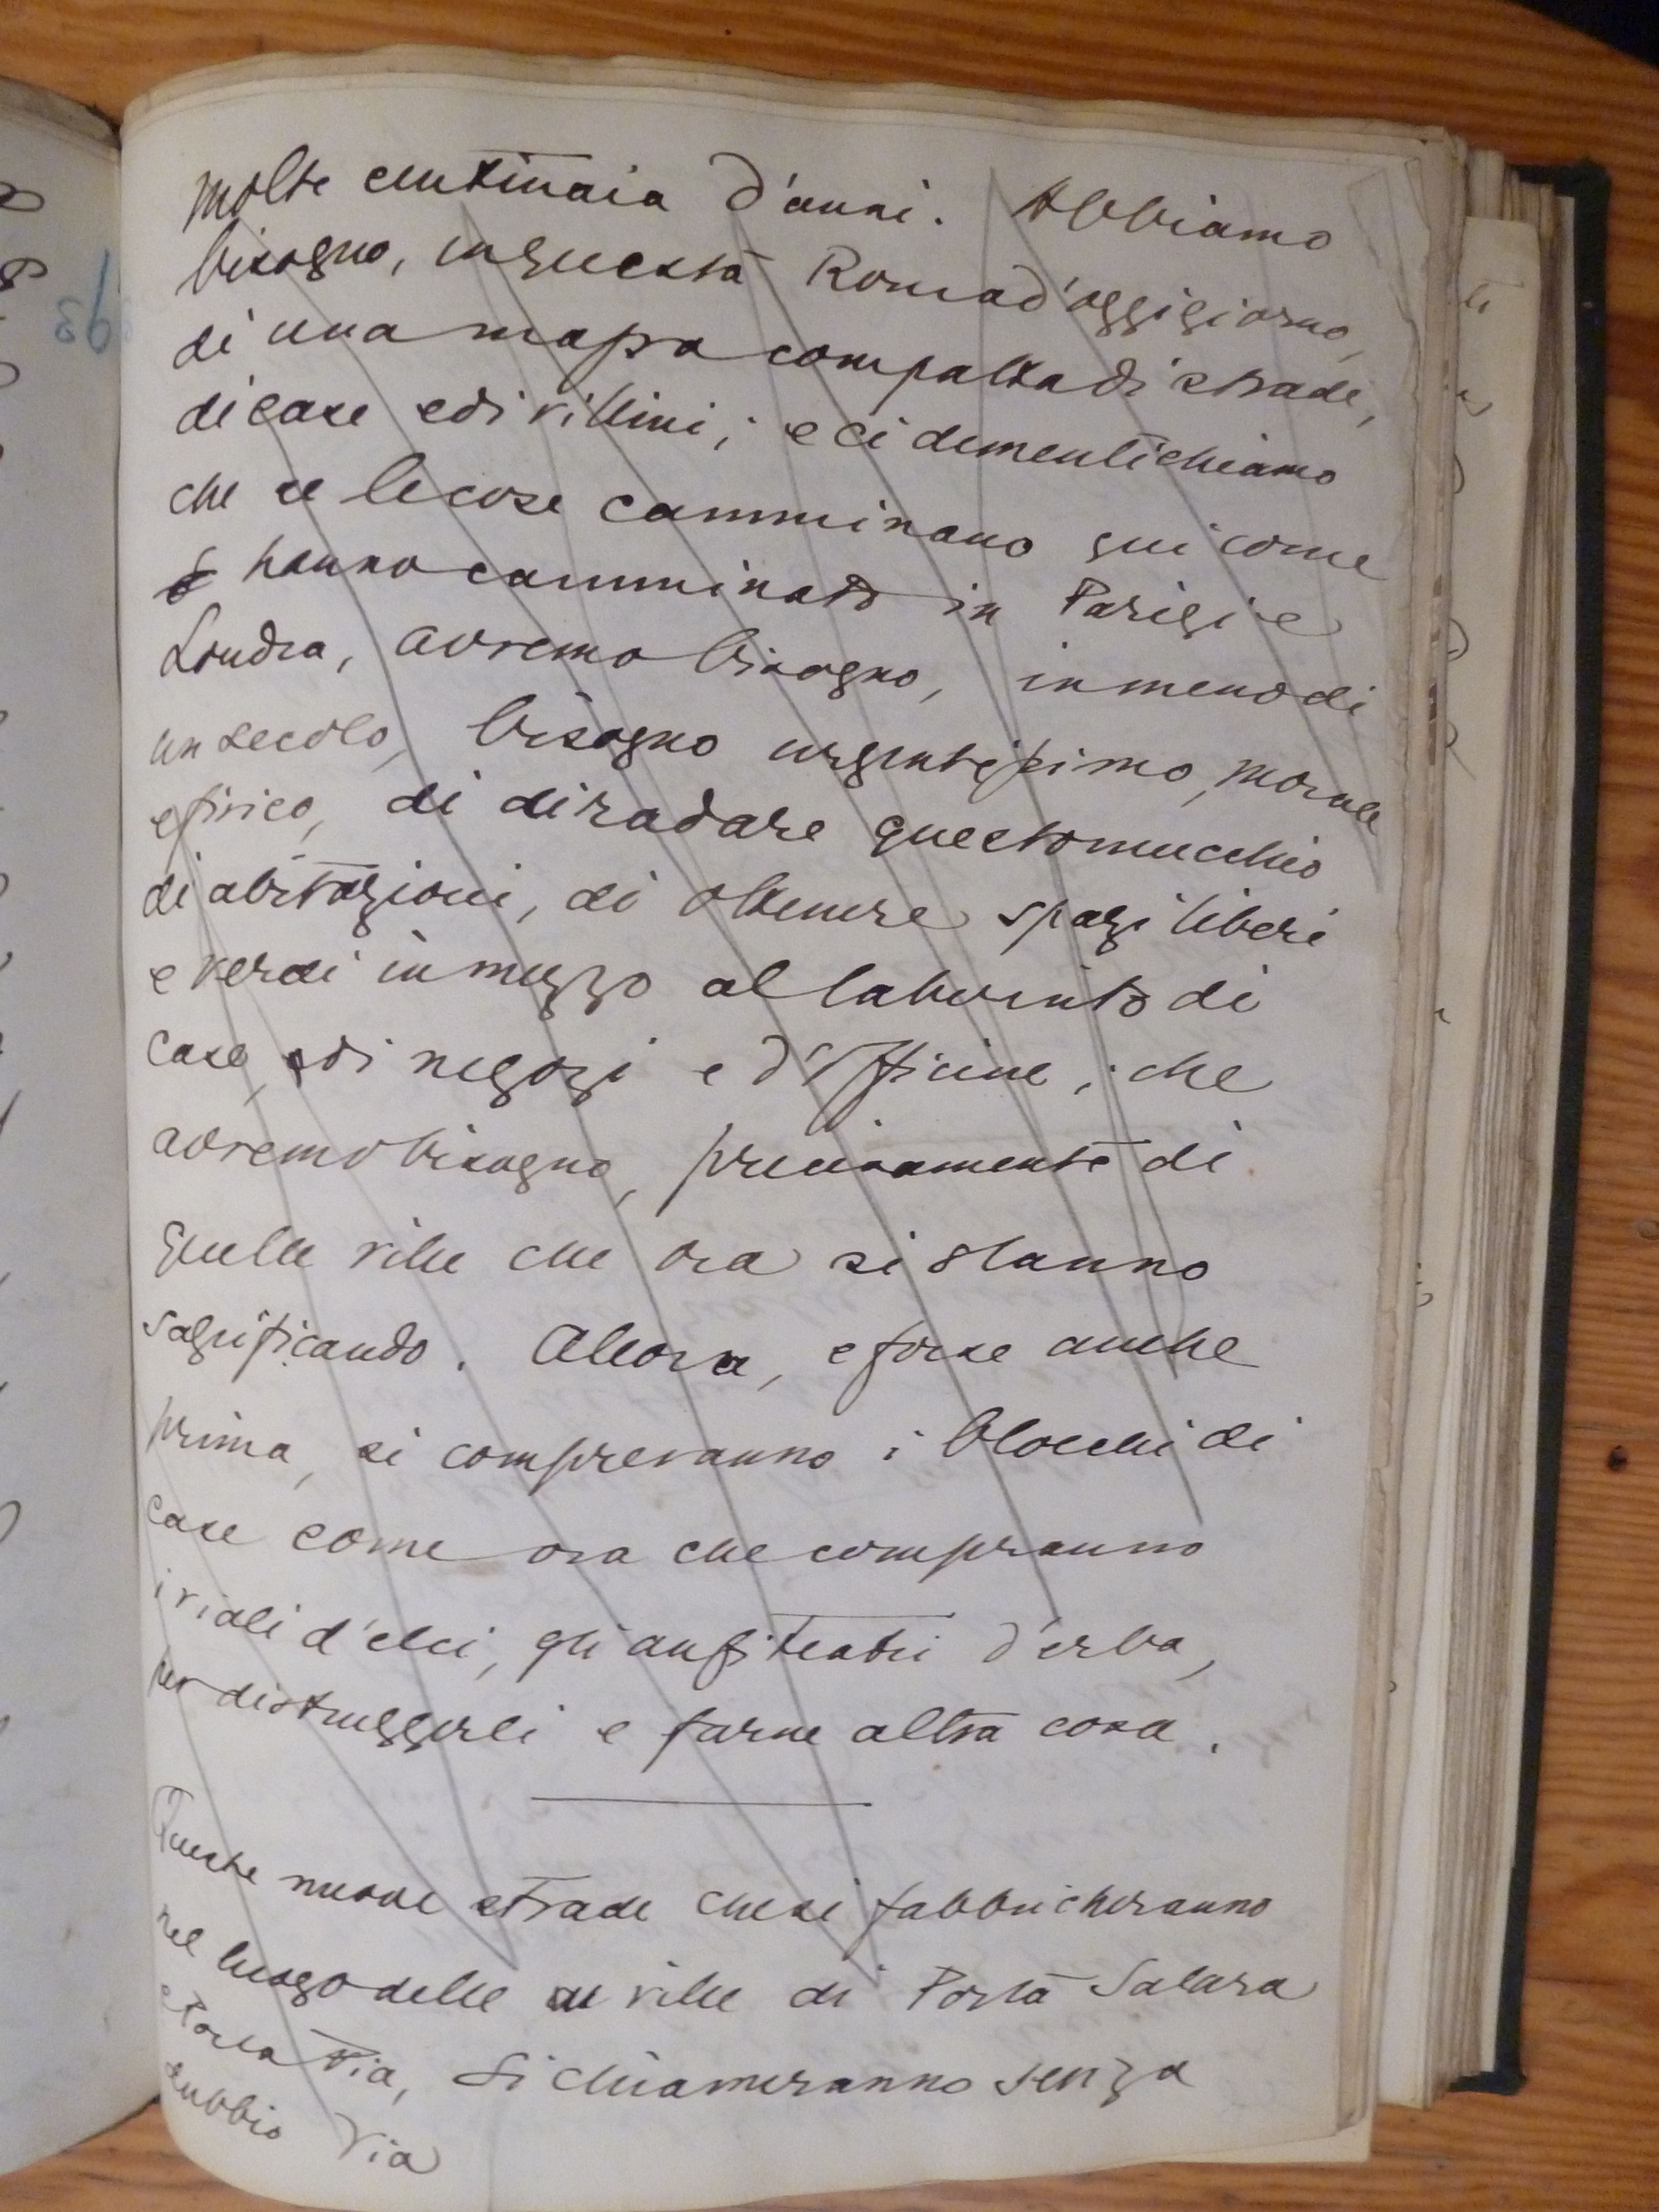 molte centinaia d'anni. Abbiamo
bisogno, in questa Roma d'oggigiorno,
di una massa compatta di strade,
di case e di villini; e ci dimentichiamo
che se le cose camminano qui come
hanno camminato in Parigi e
Londra, avremo bisogno, in meno di
un secolo, bisogno urgentissimo, morale
e fisico, di diradare questo mucchio
di abitazioni, di ottenere spazi liberi
e verdi in mezzo al laberinto di
case, e di negozi e d'officine; che
avremo bisogno, precisamente di
quelle ville che ora si stanno
sagrificando. Allora, e forse anche
prima, si compreranno i blocchi di
case come ora che compranno
i viali d'elci, gli anfiteatri d'erba,
per distruggerli e farne altra cosa.
Queste nuove strade che si fabbricheranno
nel luogo delle ville di Porta Salara
e Porta Pia, si chiameranno senza
dubbio Via